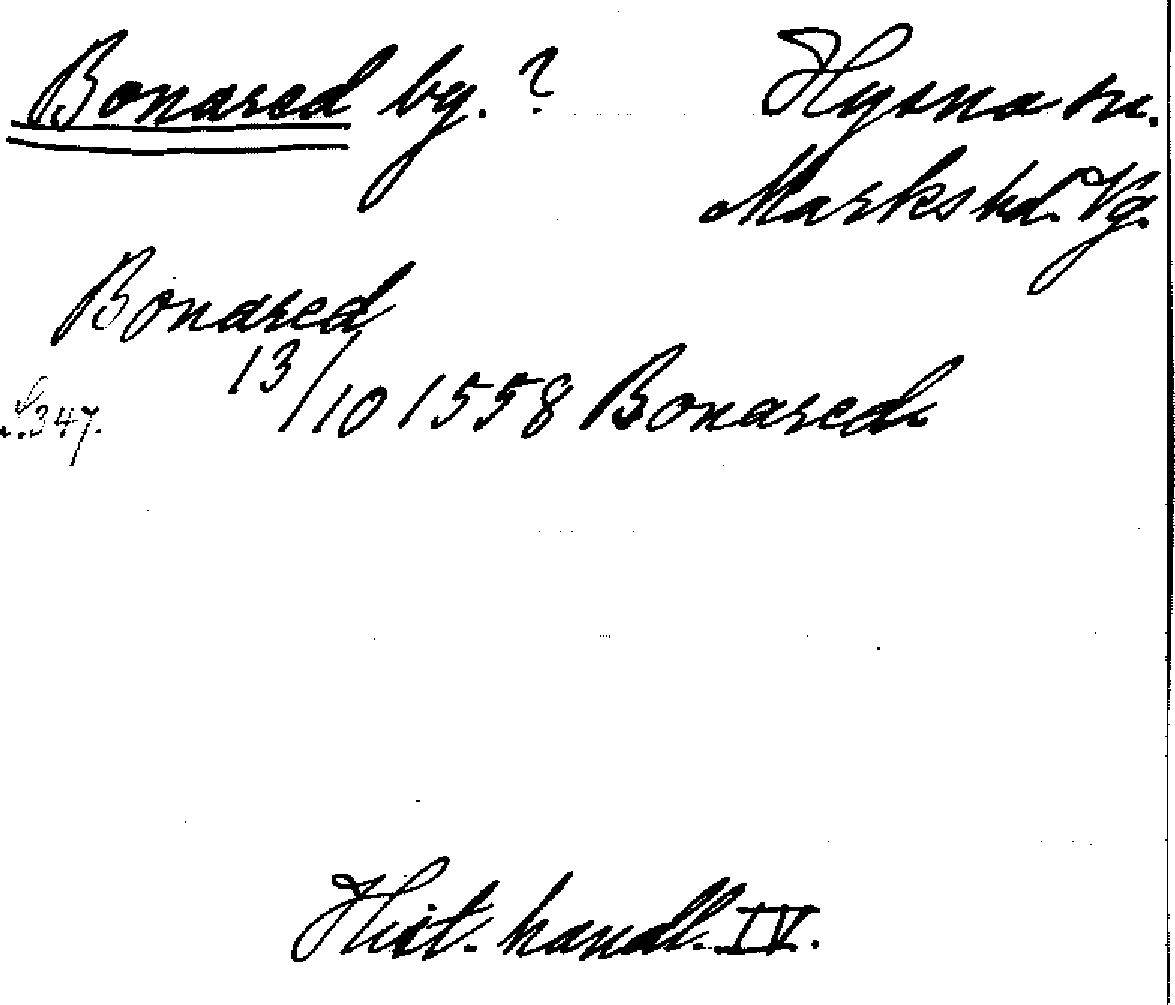 Bonared by. ? Hyssna sn.
Marks hd. Vg.
Bonared
13/10 1558 Bonared
S. 347.
Hist. handl. IV.